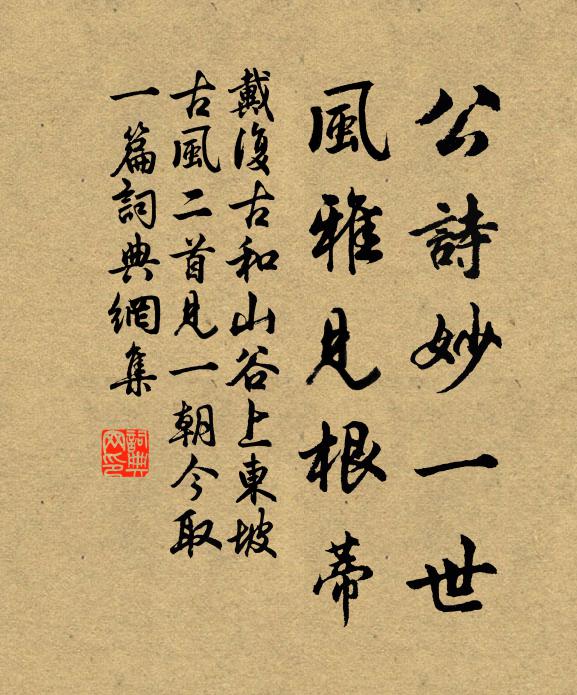 公詩妙一世
風雅見根蒂
戴復古和山谷上東坡
古風二首見一朝今取
一篇詞典網集
詞典網印